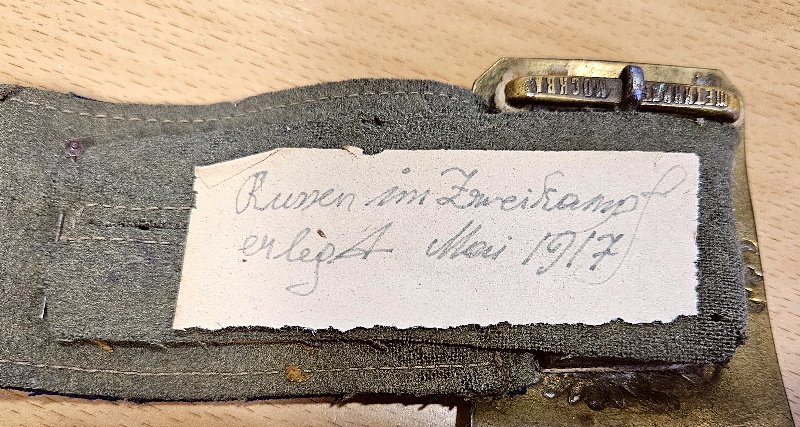 Russen im Zweikampf
erlegt Mai 1917